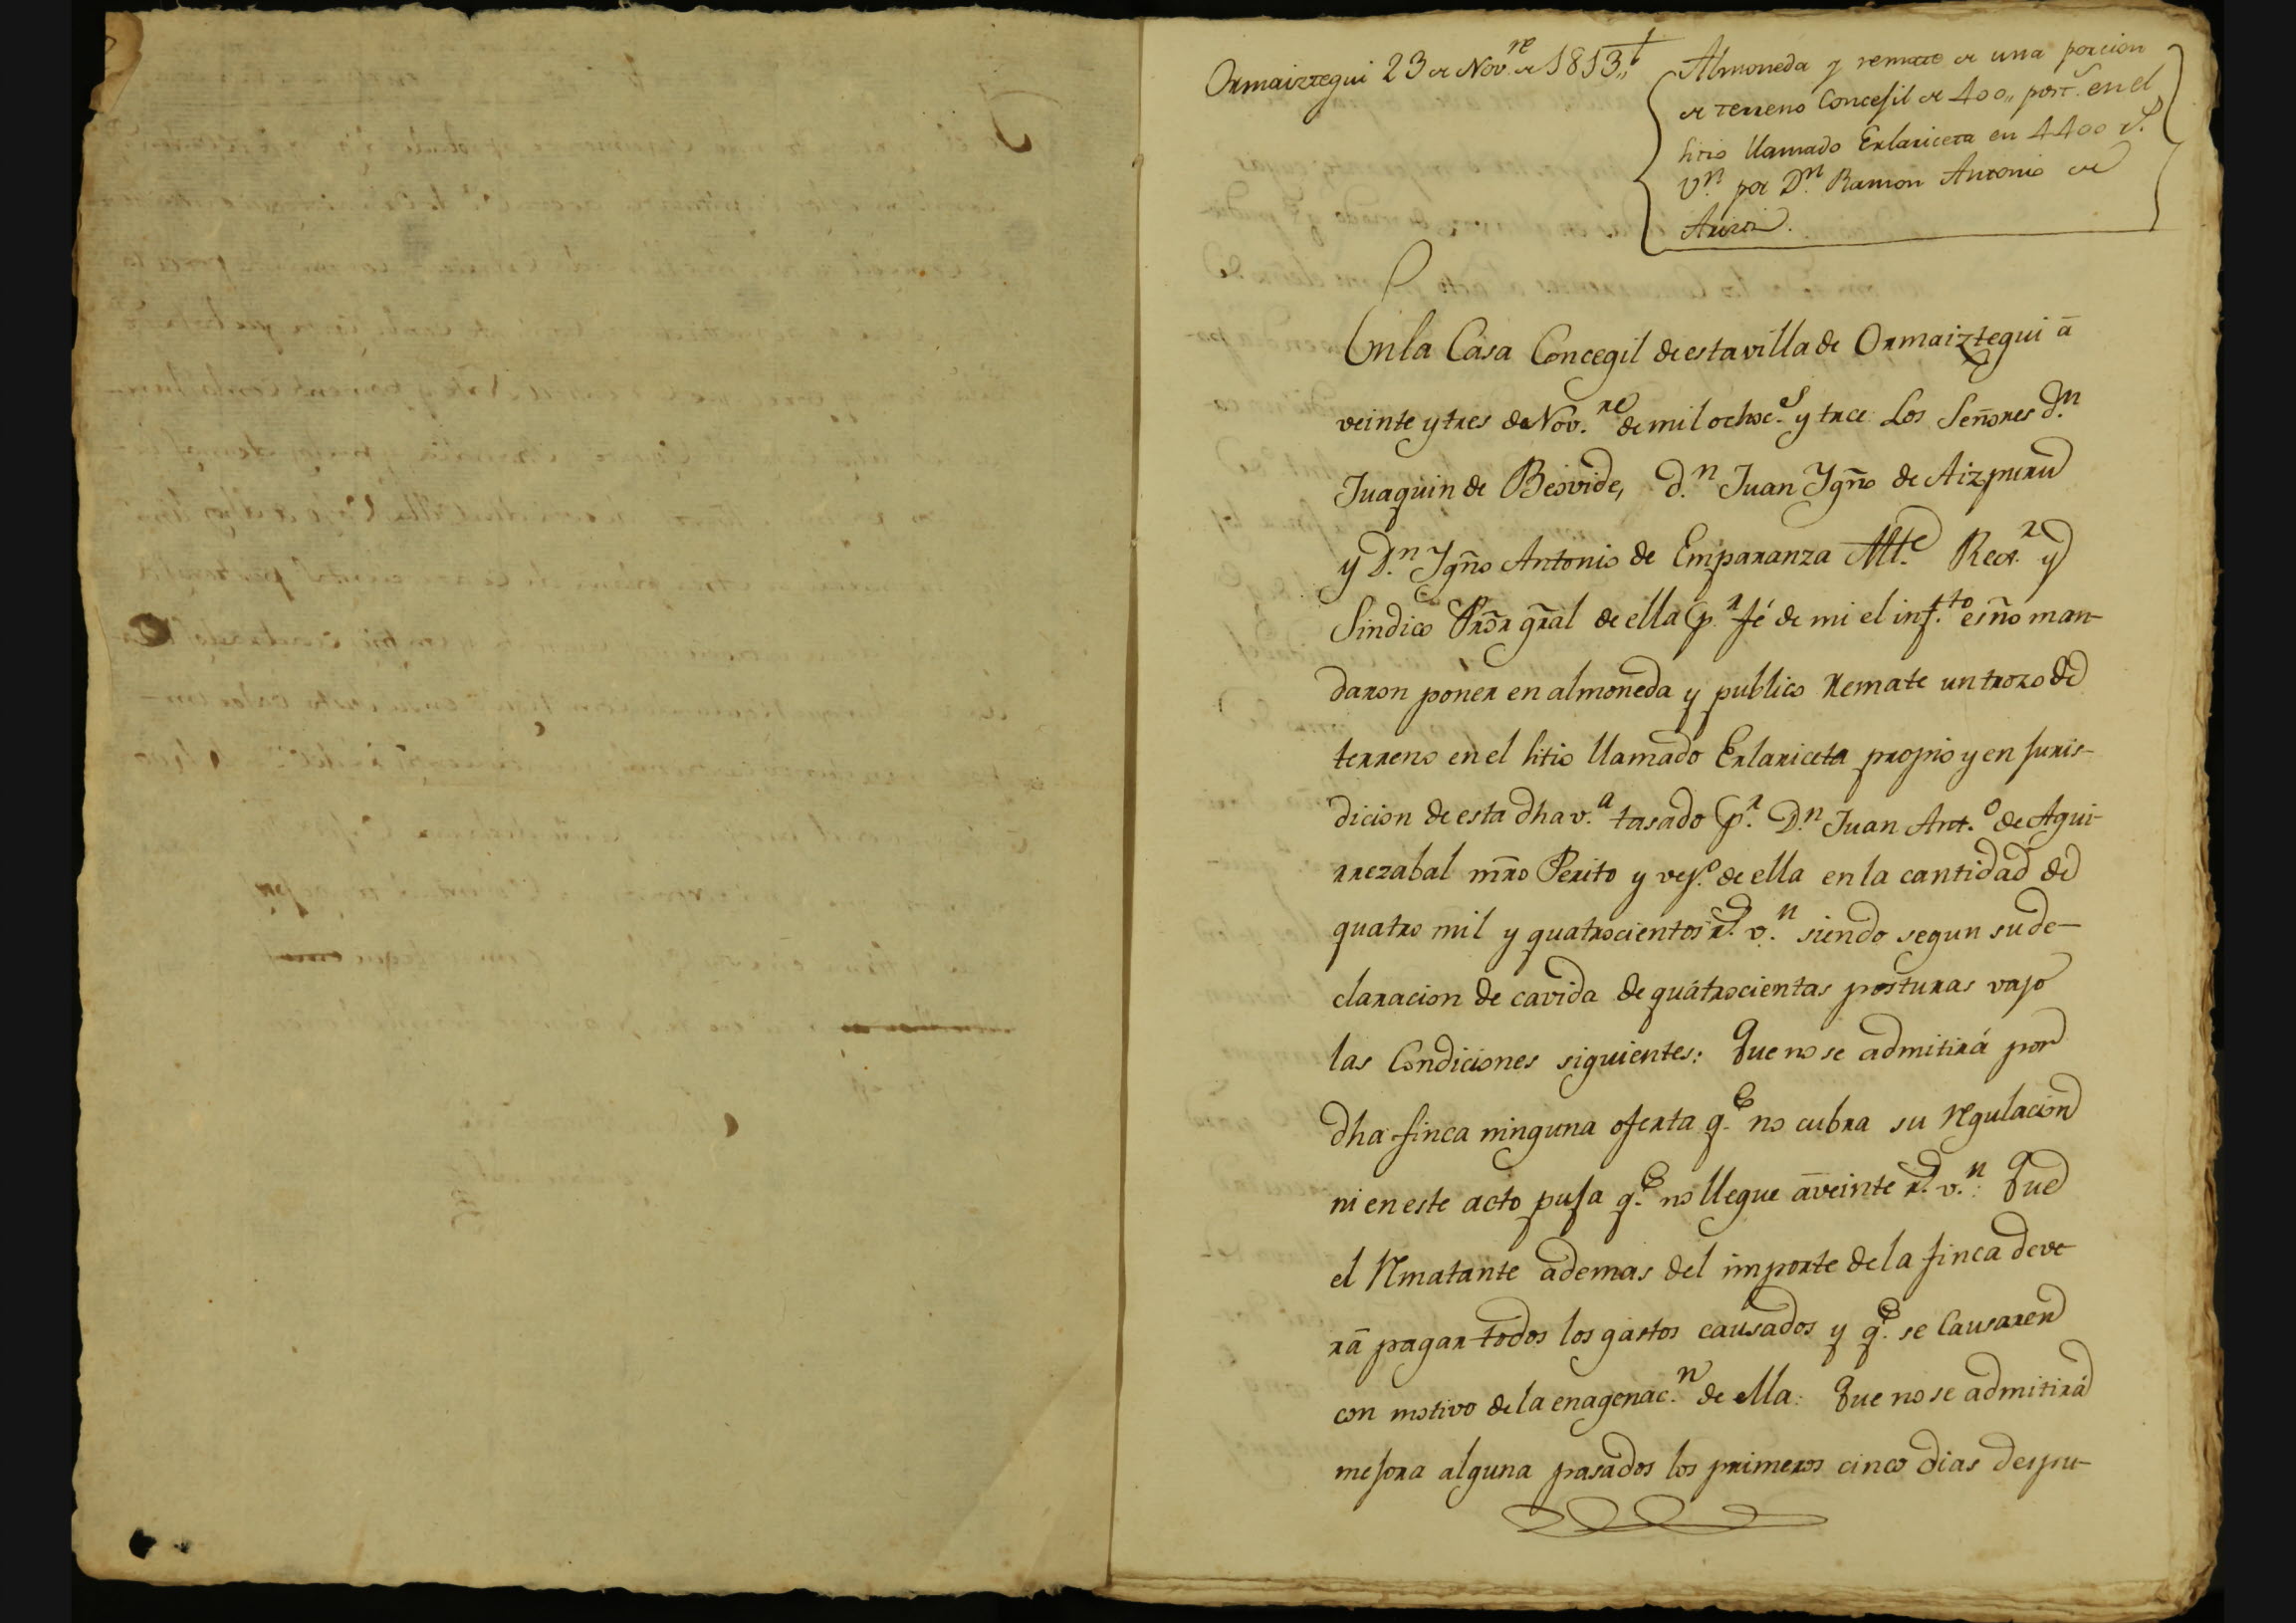 Ormaiztegui 23 de Nov.re de 1813,,
Almoneda y remate de una porcion
de terreno Concejil de 400,, post.s en el
sitio llamado Erlariceta en 4400 r.s
V.n por D.n Ramon Antonio de
En la Casa Concegil de esta villa de Ormaiztegui à
veinte y tres de Nov.re de mil ochoc.s y trce Los Señores d.n
Juaquin de Beovide, d.n Juan Ygño de Aizpuru
y D.n Ygño Antonio de Emparanza Alt.e Rex.r y
Sindico Pror gral de ella p.r fé de mi el inf.to esño man-
daron poner en almoneda y publico remate un trozo de
terreno en el sitio llamado Erlariceta propio y en juris-
dicion de esta dha v.a tasado p.r D.n Juan Ant.o de Agui-
rrezabal mro Perito y vej.o de ella en la cantidad de
quatro mil y quatrocientos r.s v.n siendo segun su de-
claracion de cavida de quatrocientas posturas vajo
las Condiciones siguientes: Que no se admitirá por
dha finca ninguna oferta q.e no cubra su regulacion
ni en este acto puja q.e no llegue à veinte r.s v.n: Que
el rematante ademas del importe de la finca deve-
rà pagar todos los gastos causados y q.e se Causaren
con motivo de la enagenac.n de ella: Que no se admitirá
mejora alguna pasados los primeros cinco dias despu-